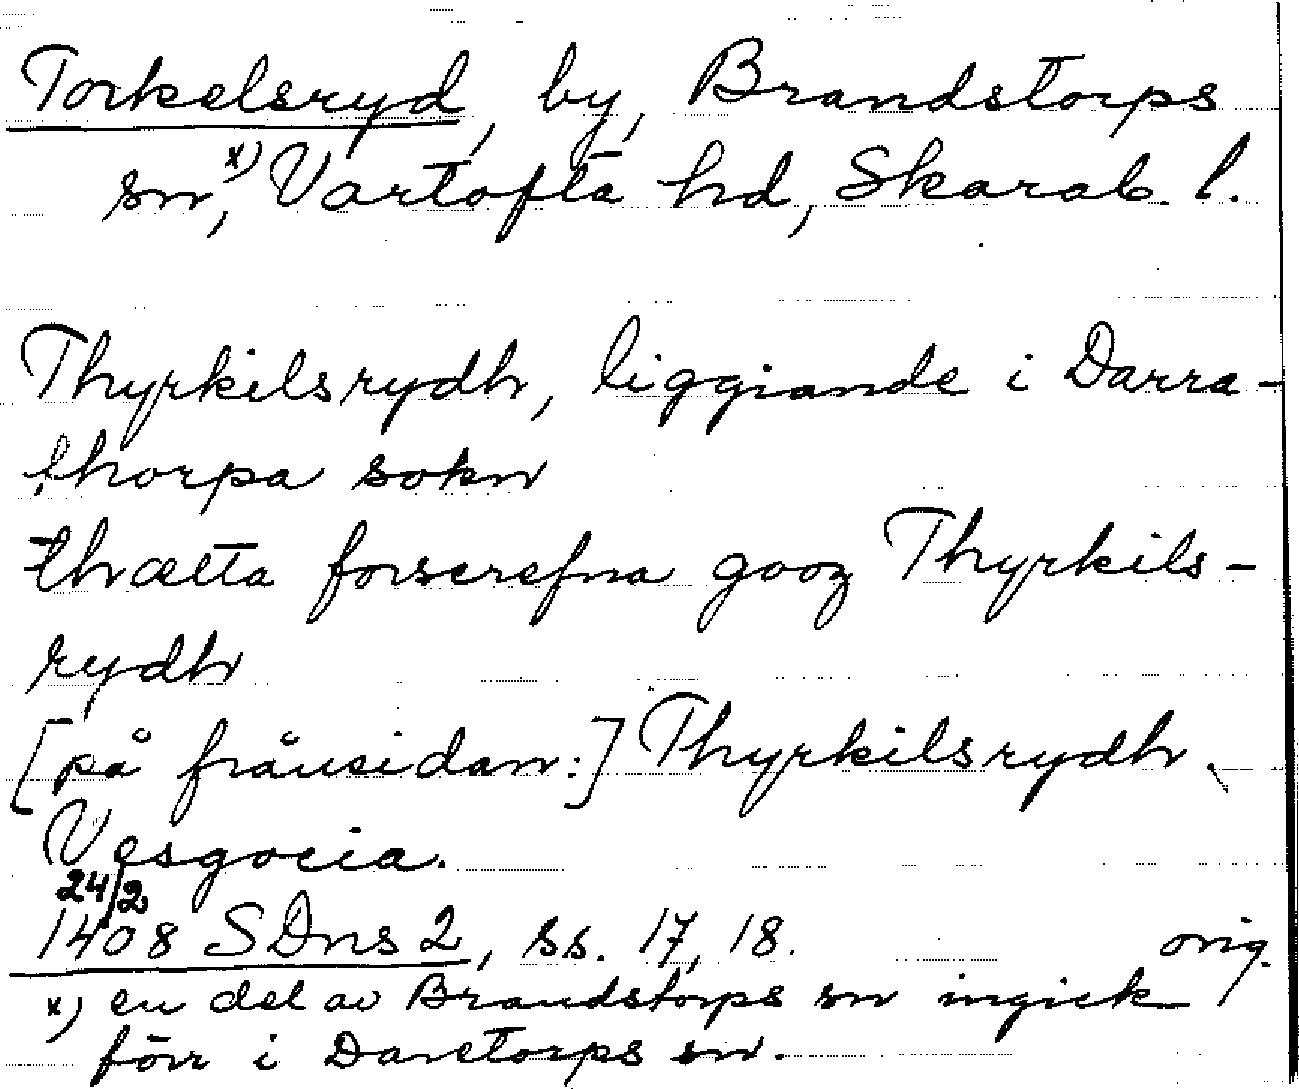 Torkelsryd, by, Brandstorps
sn,x) Vartofta hd, Skarab. l.
Thyrkilsrydh, liggiande i Darra-
thorpa sokn
thætta forscrefna gooz Thyrkils-
rydh
[på frånsidan:] Thyrkilsrydh.
Vesgocia.
24/2
1408 SDns 2, ss. 17, 18. orig.
x) en del av Brandstorps sn ingick
förr i Daretorps sn.